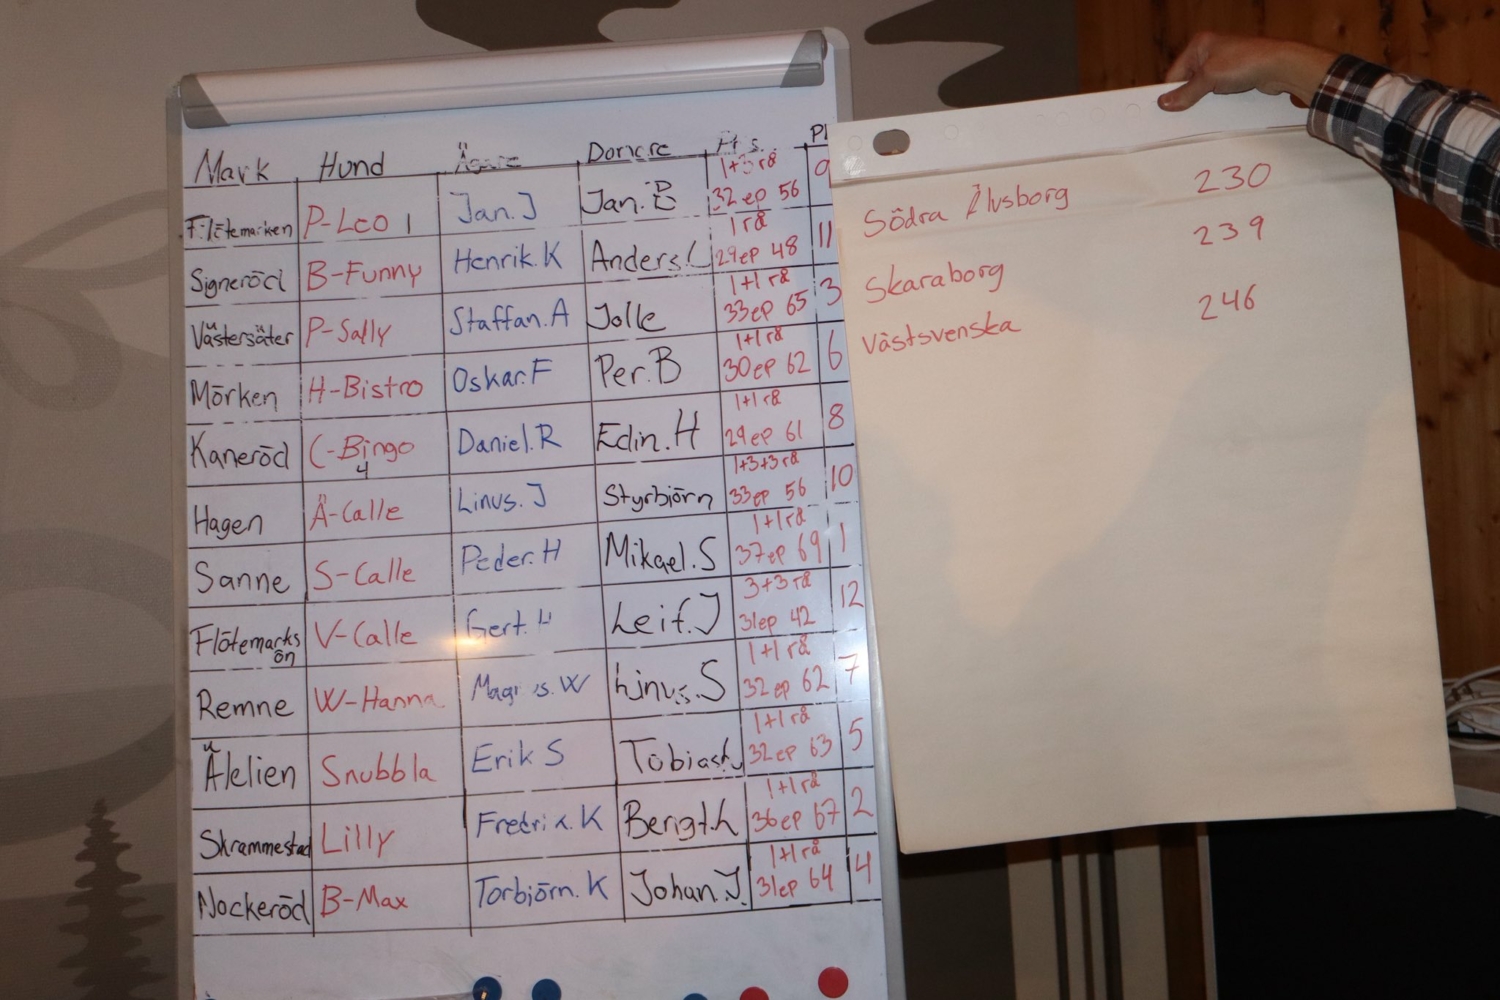 Mark Hund Ägare Domare P
Flötemarken P-Leo 1 Jan. J Jan. B 1+3 rå 32 ep 56 9
Signeröd B-Funny Henrik. K Anders. L 1 rå 29 ep 48 11
Västersäter P-Sally Staffan. A Jolle 1+1 rå 33 ep 65 3
Mörken H-Bistro Oskar. F Per. B 1+1 rå 30 ep 62 6
Kaneröd C-Bingo 4 Daniel. R Edin. H 1+1 rå 29 ep 61 8
Hagen Ä-Calle Linus. J Styrbjörn 1+3+3 rå 33 ep 56 10
Sanne S-Calle Peder. H Mikael. S 1+1 rå 37 ep 69 1
Flötemarks ön V-Calle Gert. H Leif. J 3+3 rå 31 ep 42 12
Remne W-Hanna Magnus. W Linus. S 1+1 rå 32 ep 62 7
Älelien Snubbla Erik S 1+1 rå 32 ep 63 5
Skrammestad Lilly Fredrik. K Bengt. L 1+1 rå 36 ep 67 2
Nockeröd B-Max Torbjörn. K Johan. J. 1+1 rå 31 ep 64 4
Södra Älvsborg 230
Skaraborg 239
Västsvenska 246